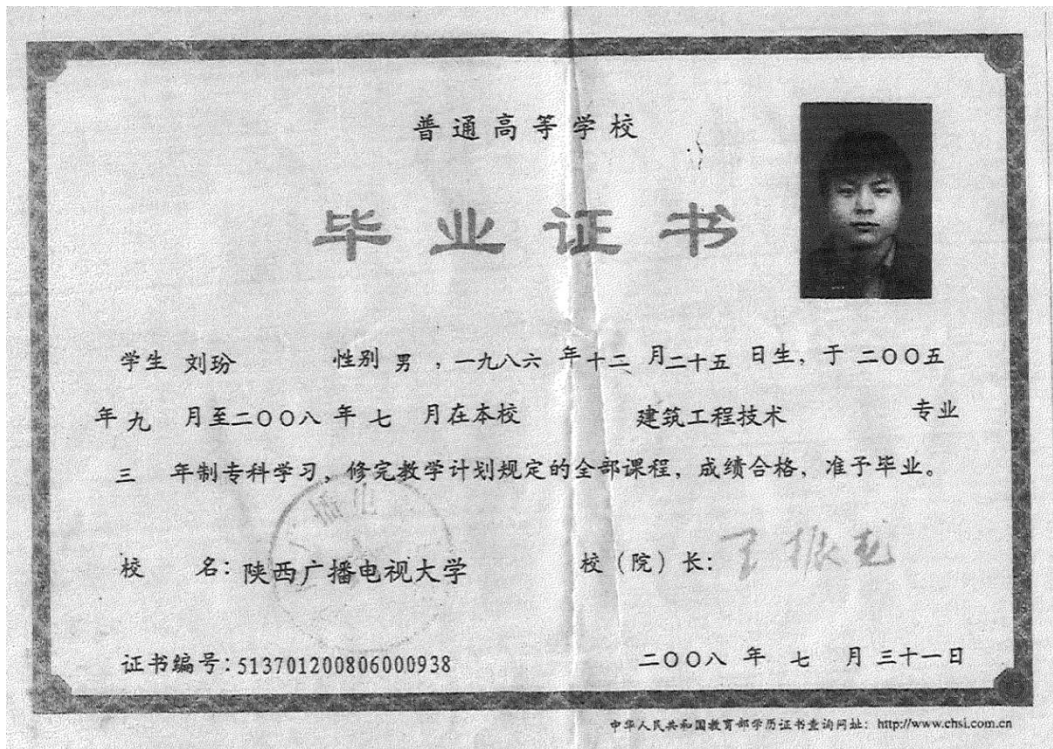 普通高等学校
毕业证书
学生 刘玢 性别 男 ，一九八六 年 十二 月 二十五 日生，于 二〇〇五
年 九 月至二〇〇八 年 七 月在本校 建筑工程技术 专业
三 年制专科学习，修完教学计划规定的全部课程，成绩合格，准予毕业。
校 名：陕西广播电视大学 校（院）长：王振龙
证书编号：513701200806000938 二〇〇八 年 七 月 三十一日
中华人民共和国教育部学历证书查询网址：http://www.chsi.com.cn